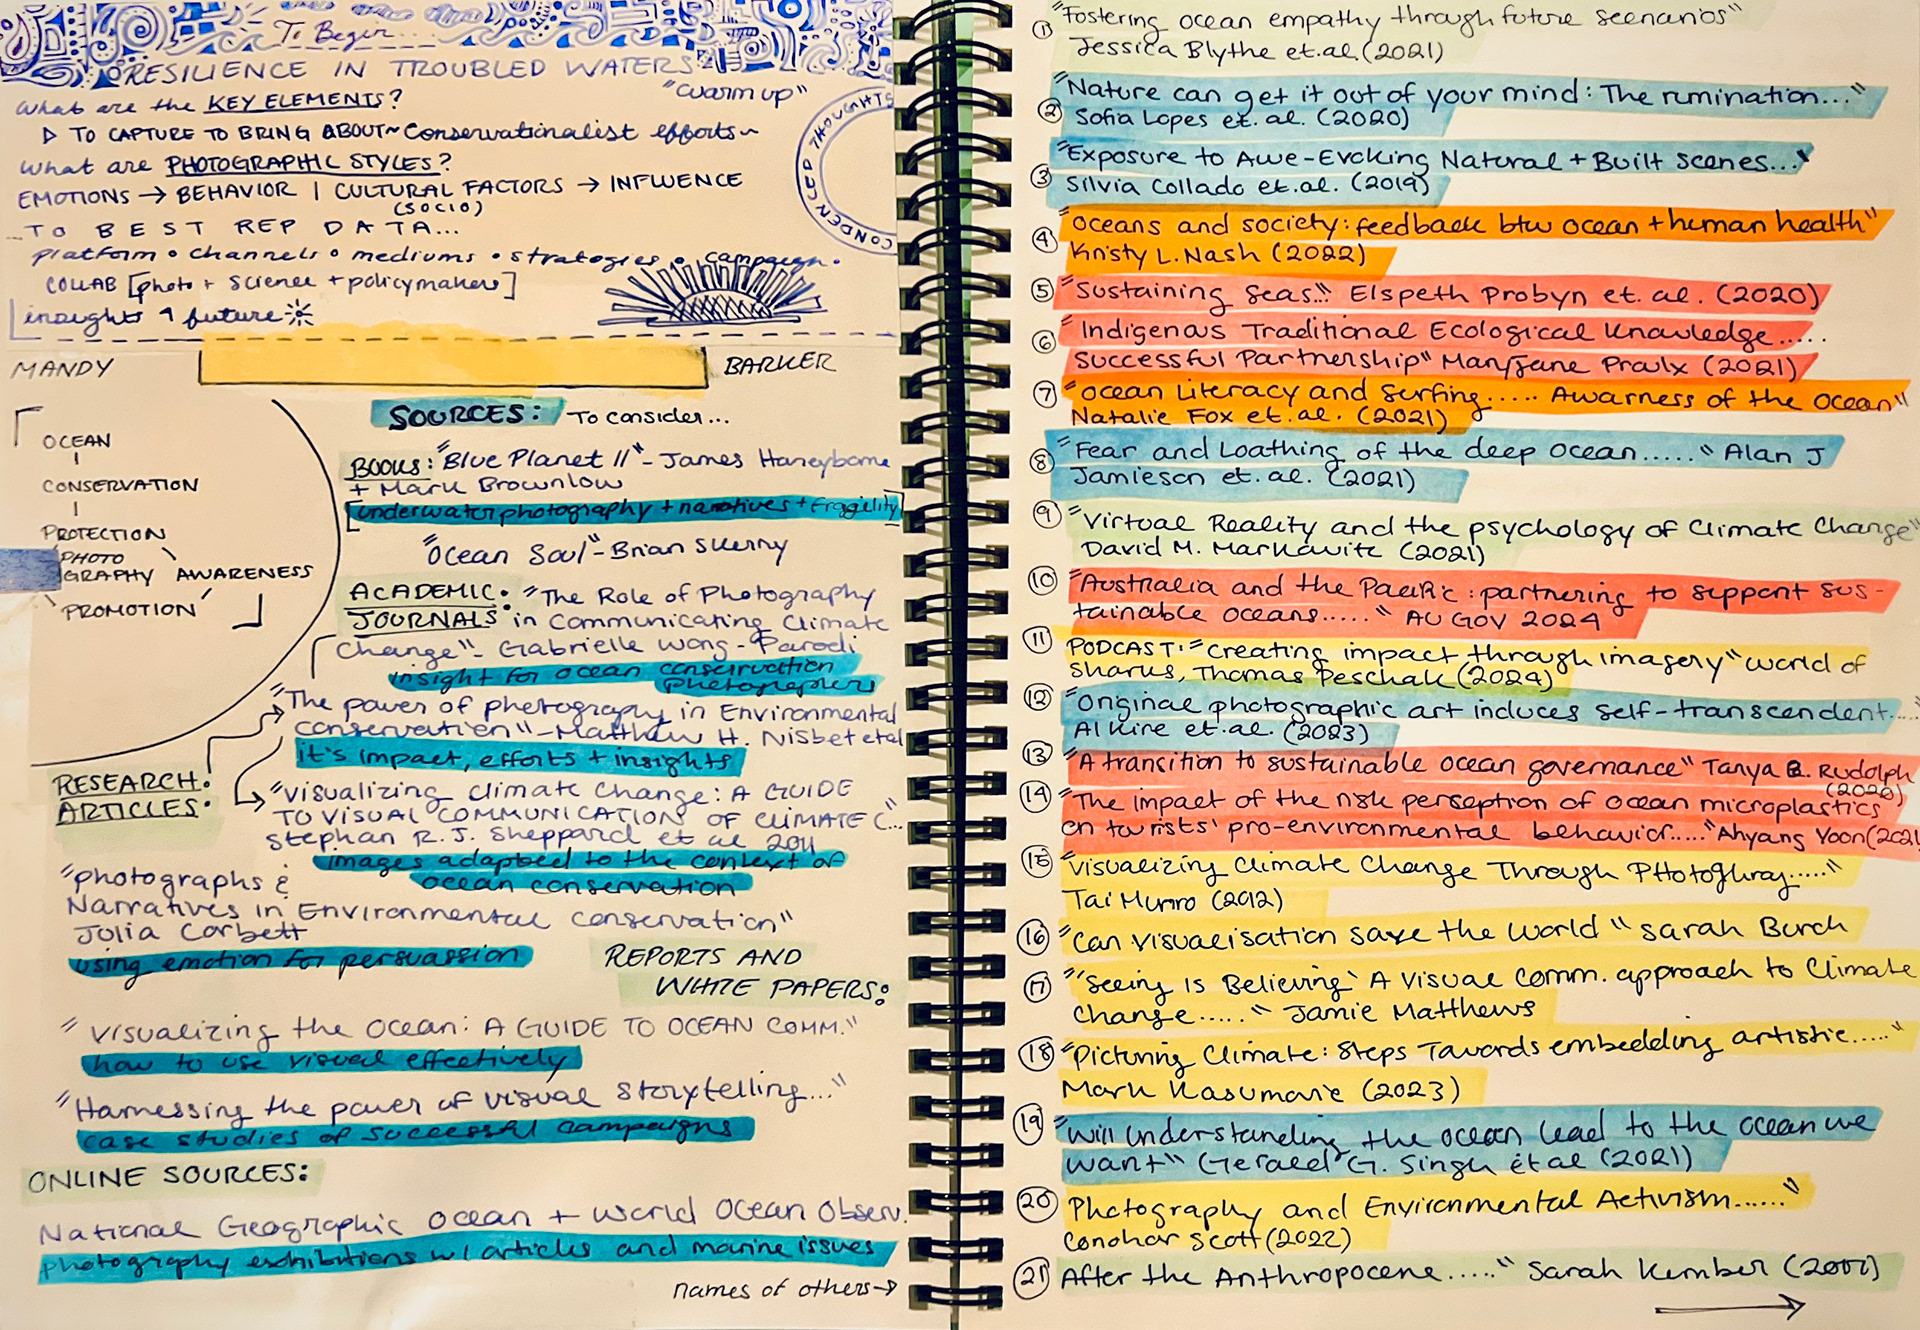 To Begin...
RESILIENCE IN TROUBLED WATERS
"warm up"
What are the KEY ELEMENTS?
▷ TO CAPTURE TO BRING ABOUT~ Conservationalist efforts~
What are PHOTOGRAPHIC STYLES?
EMOTIONS → BEHAVIOR | CULTURAL FACTORS → INFLUENCE
(SOCIO)
TO BEST REP DATA...
platform • channels • mediums • strategies • campaign.
COLLAB [photo + science + policymakers]
insights 4 future
CONDENCED THOUGHTS
MANDY BARKER
OCEAN
CONSERVATION
PROTECTION
PHOTO
GRAPHY AWARENESS
PROMOTION
SOURCES: To consider...
BOOKS: "Blue Planet II" - James Honeyborne
+ Mark Brownlow
[underwater photography + narratives + fragility]
"Ocean Soul" - Brian Skerry
ACADEMIC JOURNALS: "The Role of Photography
in Communicating Climate
Change" - Gabrielle Wong-Parodi
insight for ocean conservation
photographers
"The power of photography in Environmental
conservation" - Matthew H. Nisbet etal
it's impact, efforts + insights
RESEARCH ARTICLES:
"Visualizing Climate Change: A GUIDE
TO VISUAL COMMUNICATION OF CLIMATE C...
Stephan R.J. Sheppard et al 2011
images adapted to the context of
ocean conservation
"photographs &
Narratives in Environmental conservation"
Julia Corbett
using emotion for persuassion
REPORTS AND
WHITE PAPERS:
"Visualizing the Ocean: A GUIDE TO OCEAN COMM."
how to use visual effectively
"Harnessing the power of visual storytelling..."
case studies of successful campaigns
ONLINE SOURCES:
National Geographic Ocean + World Ocean Observ.
photography exhibitions w/ articles and marine issues
names of others →
① "Fostering ocean empathy through future scenarios"
Jessica Blythe et.al. (2021)
② "Nature can get it out of your mind: The rumination..."
Sofia Lopes et. al. (2020)
③ "Exposure to Awe-Evoking Natural + Built scenes..."
Silvia Collado et.al. (2019)
④ "Oceans and society: feedback btw ocean + human health"
Kristy L. Nash (2022)
⑤ "Sustaining Seas.." Elspeth Probyn et. al. (2020)
⑥ "Indigenous Traditional Ecological Knowledge.....
Successful Partnership" Maryjane Proulx (2021)
⑦ "Ocean Literacy and Surfing..... Awarness of the Ocean"
Natalie Fox et.al. (2021)
⑧ "Fear and Loathing of the deep ocean....." Alan J
Jamieson et. al. (2021)
⑨ "Virtual Reality and the psychology of Climate Change"
David M. Markowitz (2021)
⑩ "Australia and the Pacific: partnering to support sus-
tainable oceans....." AU GOV 2024
⑪ PODCAST: "creating impact through imagery" World of
Sharks, Thomas Peschak (2024)
⑫ "Original photographic art induces self-transcendent....."
Al Kire et.al. (2023)
⑬ "A transition to sustainable ocean governance" Tanya B. Rudolph
(2020)
⑭ "The impact of the risk perception of ocean microplastics
on tourists' pro-environmental behavior....." Ahyang Yoon (2021
⑮ "Visualizing Climate Change Through PHotoghray....."
Tai Munro (2012)
⑯ "Can visualisation save the World" Sarah Burch
⑰ "'Seeing Is Believing' A Visual Comm. approach to Climate
Change....." Jamie Matthews
⑱ "Picturing Climate: Steps Towards embedding artistic....."
Mark (2023)
⑲ "Will Understanding the ocean lead to the ocean we
want" Gerald G. Singh et al (2021)
⑳ Photography and Environmental Activism......"
Conohar Scott (2022)
㉑ After the Anthropocene....." Sarah Kember